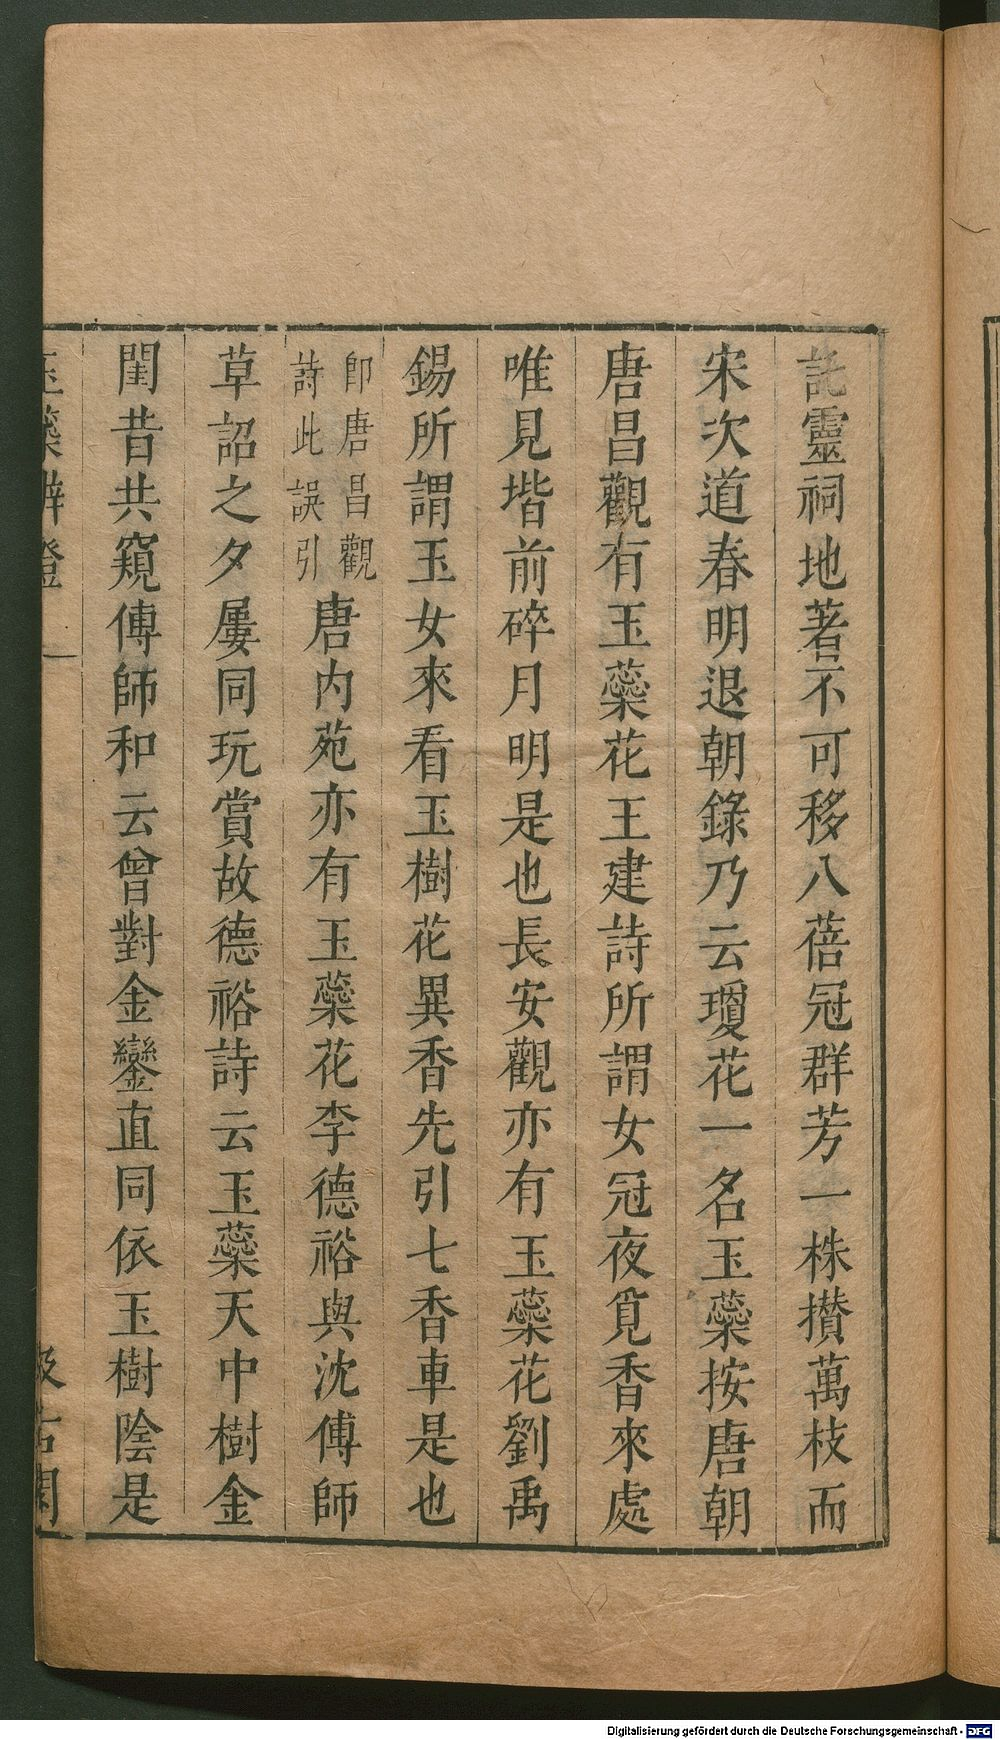 託靈祠地著不可移八蓓冠群芳一株攢萬枝而
宋次道春明退朝錄乃云瓊花一名玉蘂按唐朝
唐昌觀有玉蘂花王建詩所謂女冠夜覓香來處
唯見堦前碎月明是也長安觀亦有玉蘂花劉禹
錫所謂玉女來看玉樹花異香先引七香車是也
卽唐昌觀
詩此誤引
唐內苑亦有玉蘂花李德裕與沈傳師
草詔之夕屢同玩賞故德裕詩云玉蘂天中樹金
閨昔共窺傳師和云曾對金鑾直同依玉樹陰是
玉蘂辨證 一 汲古閣
Digitalisierung gefördert durch die Deutsche Forschungsgemeinschaft - DFG